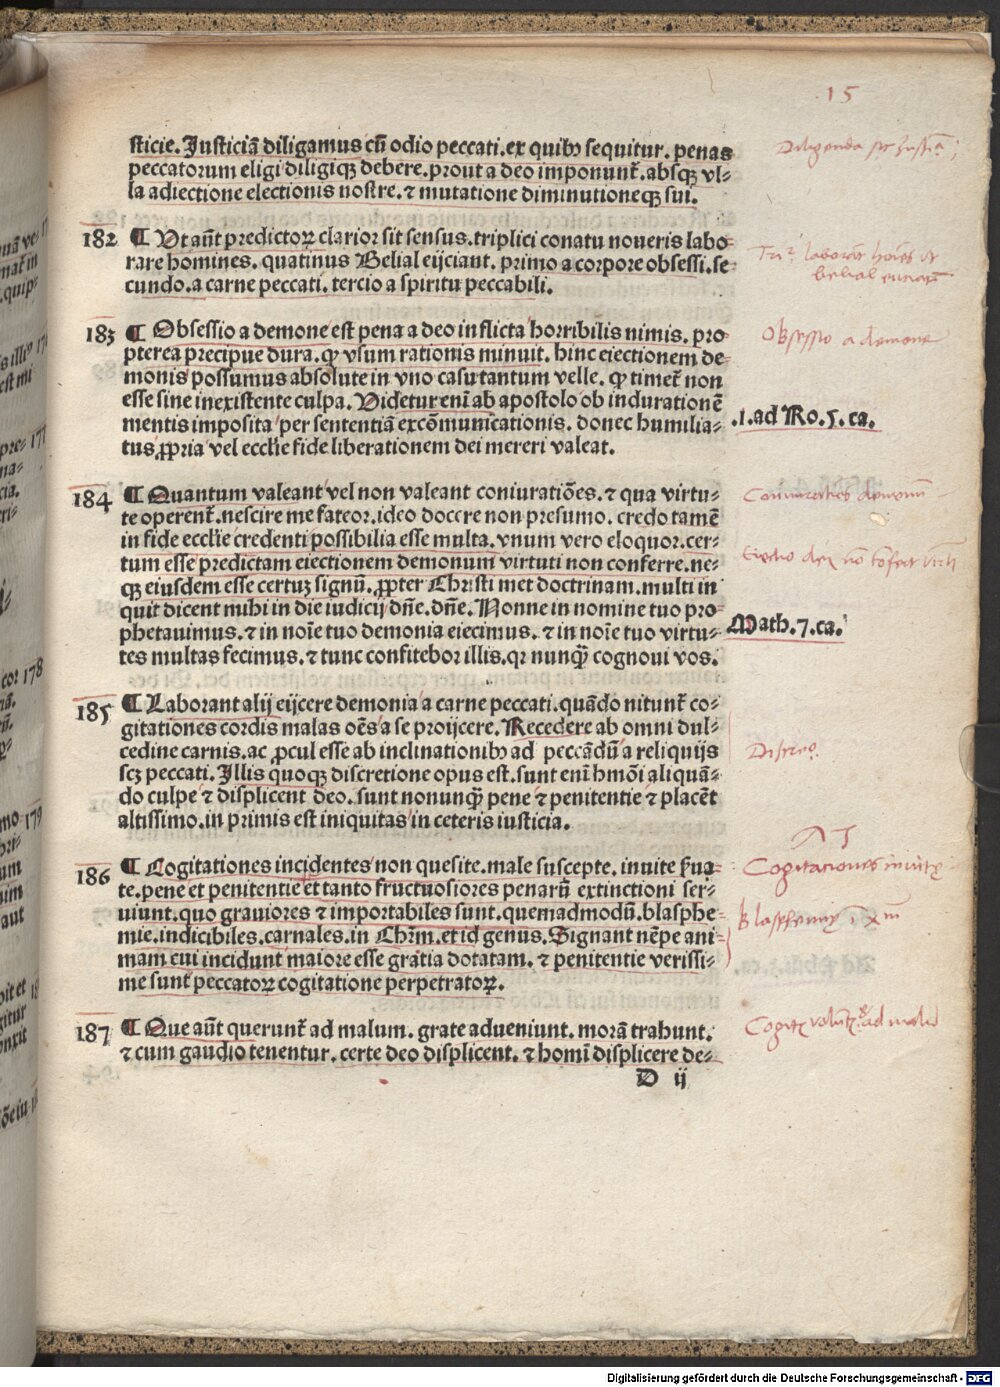 15
sticie. Iusticiā diligamus cū odio peccati. ex quibꝰ sequitur. penas
peccatorum eligi diligiqꝫ debere. prout a deo imponunt̄. absqꝫ vl⸗
la adiectione electionis nostre. ⁊ mutatione diminutioneqꝫ sui.
182 ¶ Ut aūt predictoꝝ clarior sit sensus. triplici conatu noueris labo⸗
rare homines. quatinus Belial eijciant. primo a corpore obsessi. se⸗
cundo. a carne peccati. tercio a spiritu peccabili.
183 ¶ Obsessio a demone est pena a deo inflicta horribilis nimis. pro⸗
pterea precipue dura. qꝛ vsum rationis minuit. hinc eiectionem de⸗
monis possumus absolute in vno casu tantum velle. qꝛ timet̄ non
esse sine inexistente culpa. Videtur enī ab apostolo ob indurationē
mentis imposita per sententiā excōmunicationis. donec humilia⸗
.1. ad Ro. 5. ca.
tus ꝓpria vel eccl̄ie fide liberationem dei mereri valeat.
184 ¶ Quantum valeant vel non valeant coniuratiōes. ⁊ qua virtu⸗
te operent̄. nescire me fateor. ideo docere non presumo. credo tamē
in fide eccl̄ie credenti possibilia esse multa. vnum vero eloquor. cer⸗
tum esse predictam eiectionem demonum virtuti non conferre. ne⸗
qꝫ eiusdem esse certuꝫ signū. ꝓpter Christi met doctrinam. multi in
quit dicent mihi in die iudicij dn̄e. dn̄e. Nonne in nomine tuo pro⸗
phetauimus. ⁊ in noīe tuo demonia eiecimus. ⁊ in noīe tuo virtu⸗
Math. 7. ca.
tes multas fecimus. ⁊ tunc confitebor illis. qꝛ nunqꝫ̄ cognoui vos.
185 ¶ Laborant alij eijcere demonia a carne peccati. quādo nitunt̄ co⸗
gitationes cordis malas oēs a se proijcere. Recedere ab omni dul⸗
cedine carnis. ac ꝓcul esse ab inclinationibꝰ ad peccādū a reliquijs
scꝫ peccati. Illis quoqꝫ discretione opus est. sunt enī hmōi aliquā⸗
do culpe ⁊ displicent deo. sunt nonunqꝫ̄ pene ⁊ penitentie ⁊ placēt
altissimo. in primis est iniquitas in ceteris iusticia.
186 ¶ Cogitationes incidentes non quesite. male suscepte. inuite ẜua⸗
te. pene et penitentie et tanto fructuosiores penarū extinctioni ser⸗
uiunt. quo grauiores ⁊ importabiles sunt. quemadmodū. blasphe⸗
mie. indicibiles. carnales. in Chr̄m. et id genus. Signant nēpe ani⸗
mam cui incidunt maiore esse gratia dotatam. ⁊ penitentie verissi⸗
me sunt peccatoꝝ cogitatione perpetratoꝝ.
187 ¶ Que aūt querunt̄ ad malum. grate adueniunt. morā trahunt.
⁊ cum gaudio tenentur. certe deo displicent. ⁊ homī displicere de⸗
D ij
Obsessio a demone
Discreo.
Digitalisierung gefördert durch die Deutsche Forschungsgemeinschaft - DFG